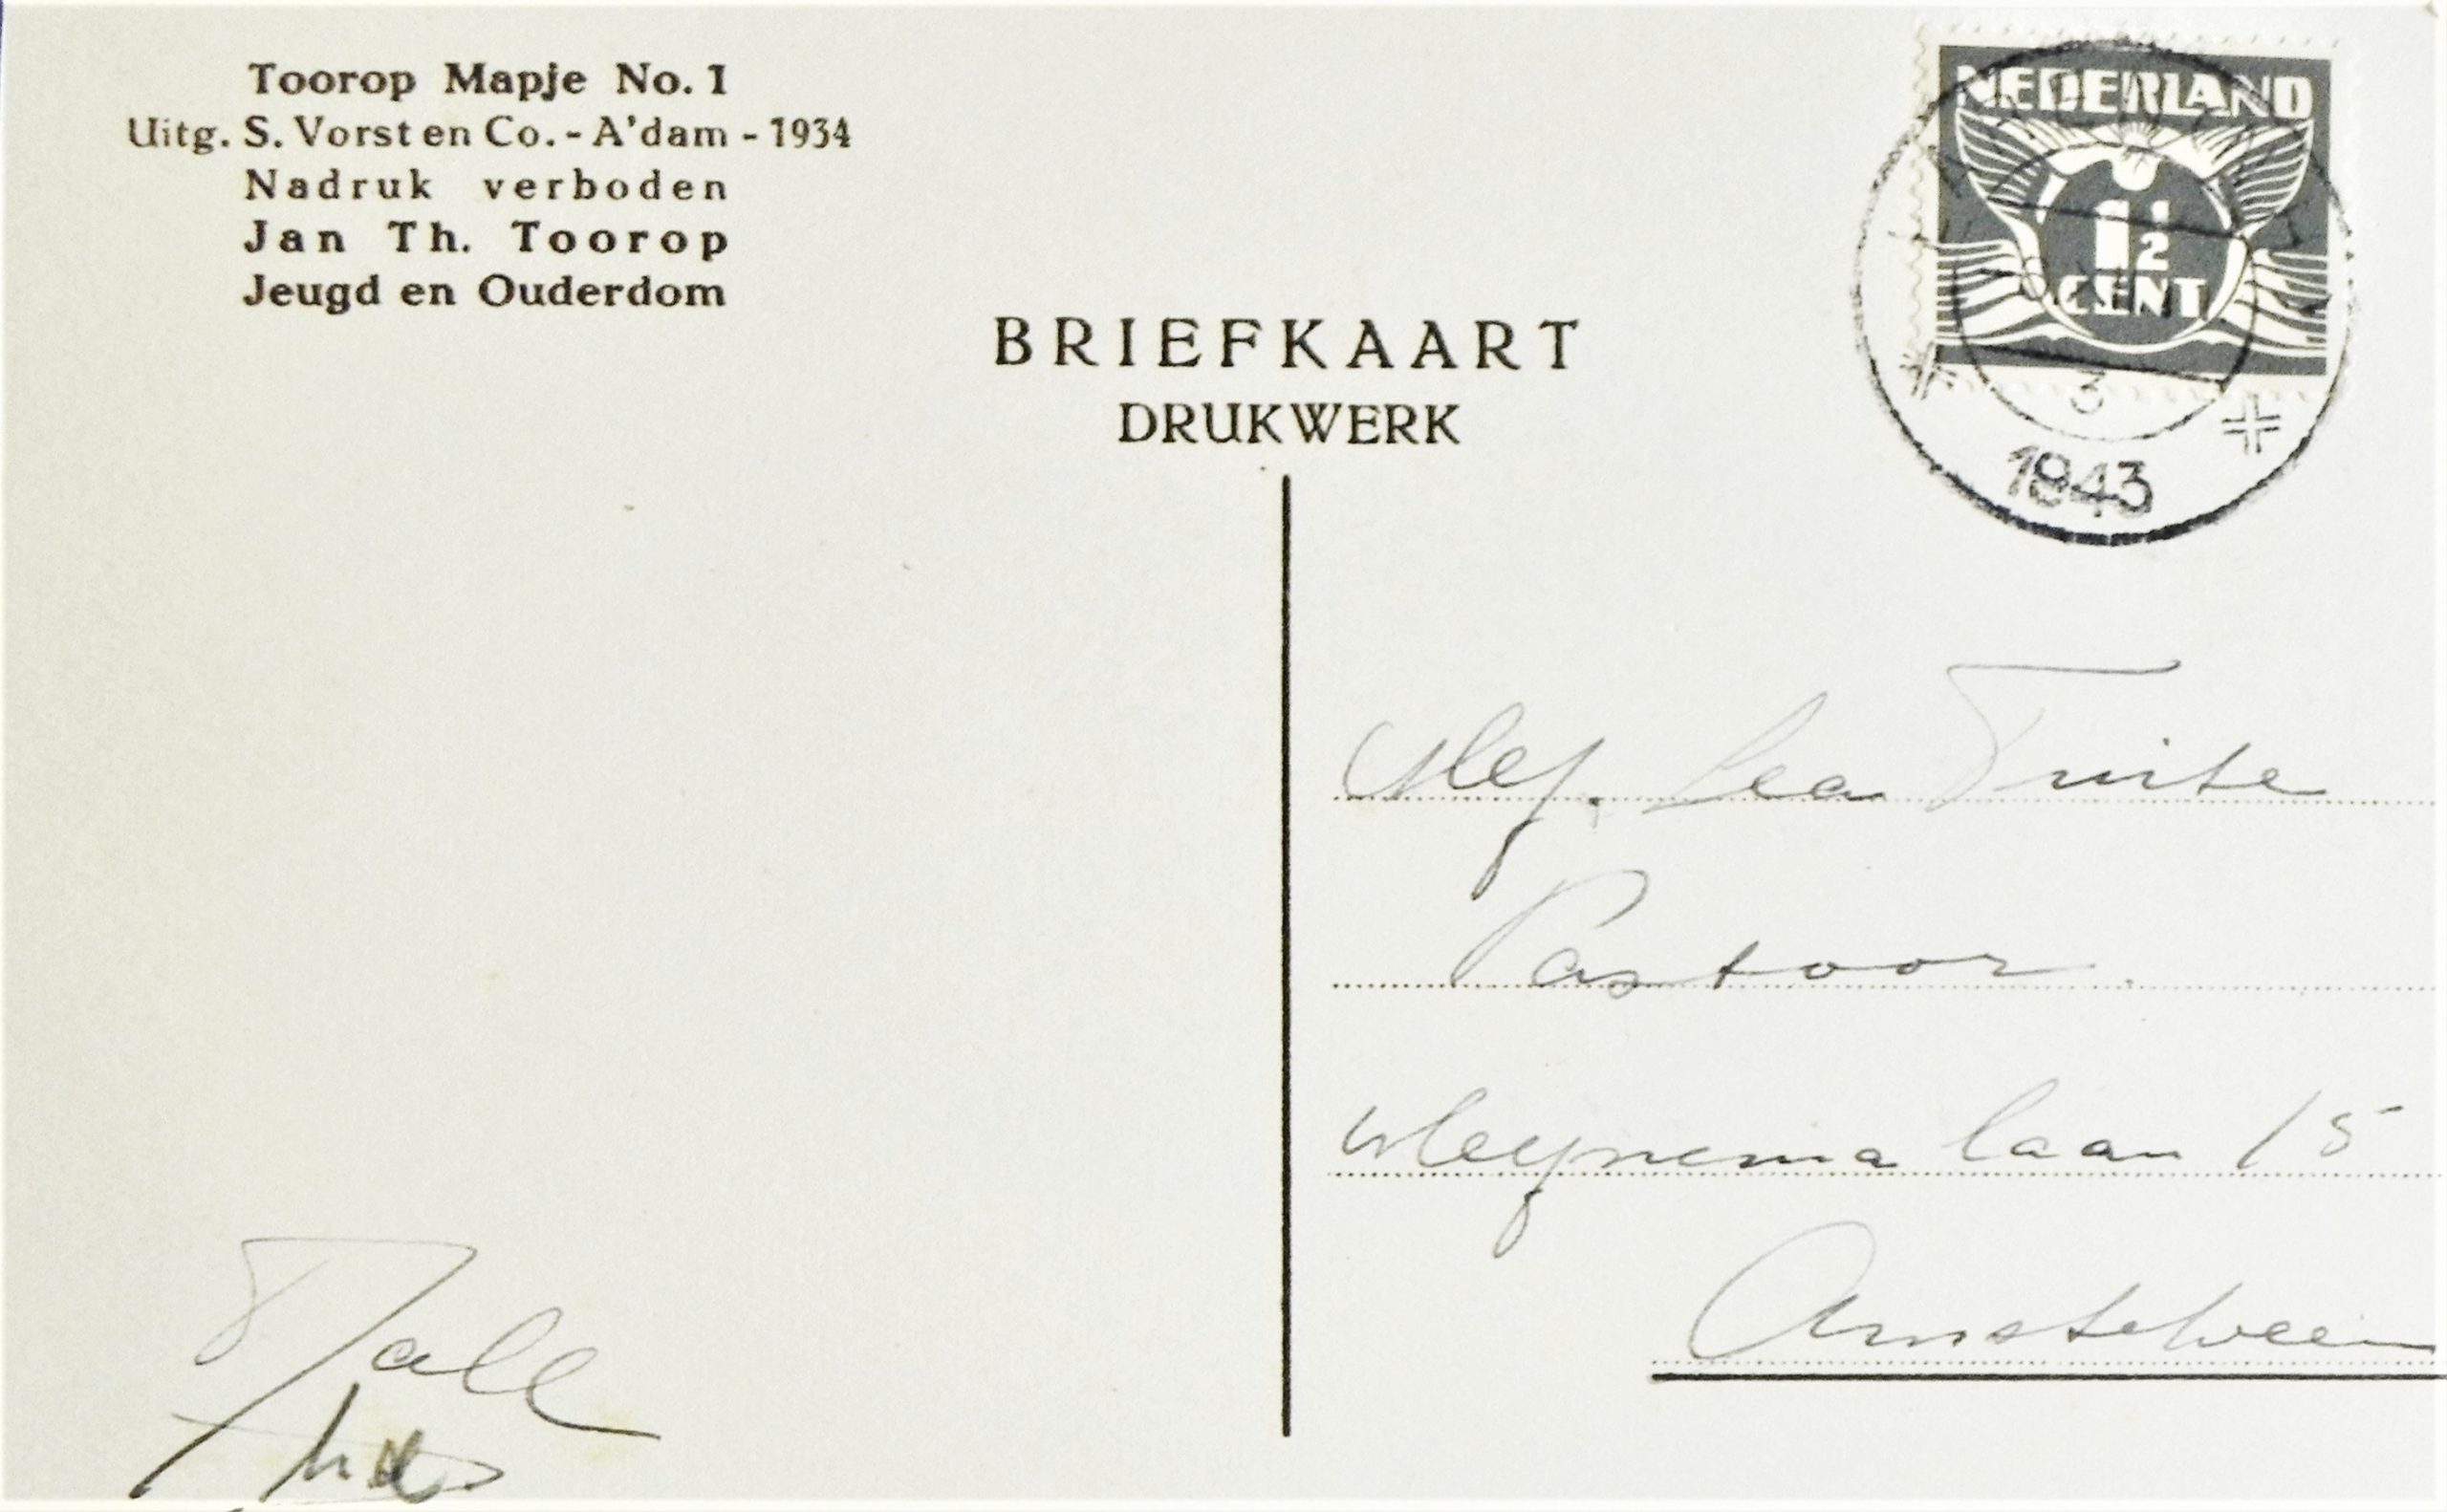 Toorop Mapje No. 1
Uitg. S. Vorst en Co. - A'dam - 1934
Nadruk verboden
Jan Th. Toorop
Jeugd en Ouderdom
BRIEFKAART
DRUKWERK
NEDERLAND
1½
CENT
3
1943
Mej. Lea Fuite
Pastoor
Meynema laan 15
Amstelveen